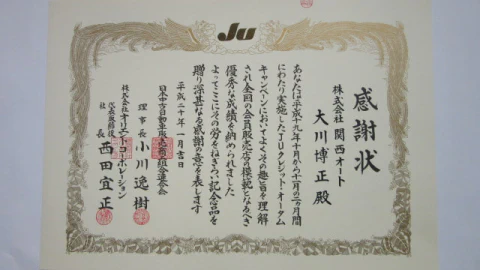 JU
感謝状
株式会社 関西オート
大川博正殿
あなたは平成十九年十月から十一月の二ヶ月間
にわたり実施したJUクレジット・オータム
キャンペーンにおいてよくその趣旨を理解
され全国の会員販売店の模範となるべき
優秀な成績を納められました
よってここにその労をねぎらい記念品を
贈り深甚なる感謝の意を表します
平成二十年一月吉日
日本中古自動車販売商工組合連合会
理事長 小川逸樹
株式会社オリエントコーポレーション
代表取締役社長 西田宜正